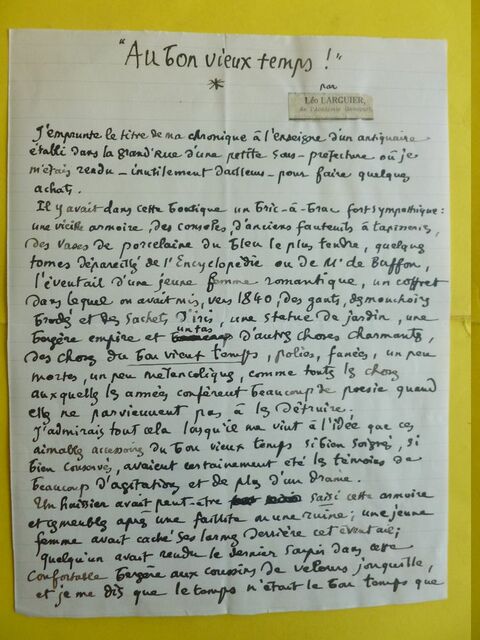 "Au bon vieux temps !"
*
par
Léo LARGUIER,
de l'Académie Goncourt.
J'emprunte le titre de ma chronique à l'enseigne d'un antiquaire
établi dans la grand'rue d'une petite sous-préfecture où je
m'étais rendu - inutilement d'ailleurs - pour faire quelques
achats.
Il y avait dans cette boutique un bric-à-brac fort sympathique :
une vieille armoire, des consoles, d'anciens fauteuils à tapisseries,
des vases de porcelaine du bleu le plus tendre, quelques
tomes dépareillés de l'Encyclopédie ou de Mr de Buffon,
l'éventail d'une jeune femme romantique, un coffret
dans lequel on avait mis, vers 1840, des gants, des mouchoirs
brodés et des sachets d'iris, une statue de jardin, une
bergère empire et un tas d'autres choses charmantes,
des choses du bon vieux temps, polies, fanées, un peu
mortes, un peu mélancoliques, comme toutes les choses
auxquelles les années confèrent beaucoup de poésie quand
elles ne parviennent pas à les détruire.
J'admirais tout cela lorsqu'il me vint à l'idée que ces
aimables accessoires du bon vieux temps si bien soignés, si
bien conservés, avaient certainement été les témoins de
beaucoup d'agitations et de plus d'un drame.
Un huissier avait peut-être saisi cette armoire
et ces meubles après une faillite ou une ruine ; une jeune
femme avait caché ses larmes derrière cet éventail ;
quelqu'un avait rendu le dernier soupir dans cette
confortable bergère aux coussins de velours jonquille,
et je me dis que le temps n'était le bon temps que